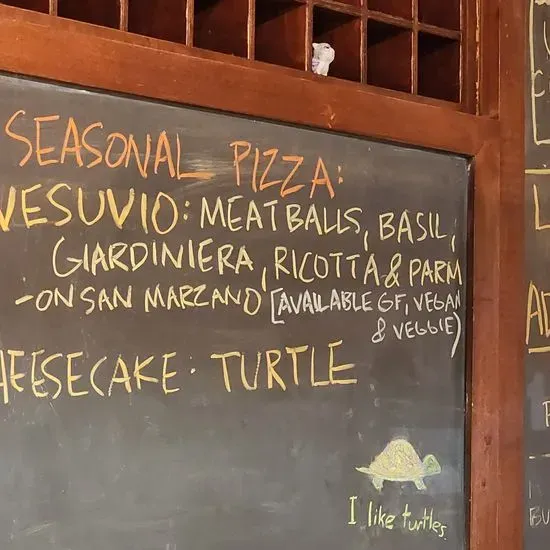 SEASONAL PIZZA:
VESUVIO: MEATBALLS, BASIL,
GIARDINIERA, RICOTTA & PARM
-ON SAN MARZANO [AVAILABLE GF, VEGAN
& VEGGIE)
HEESECAKE: TURTLE
I like turtles.